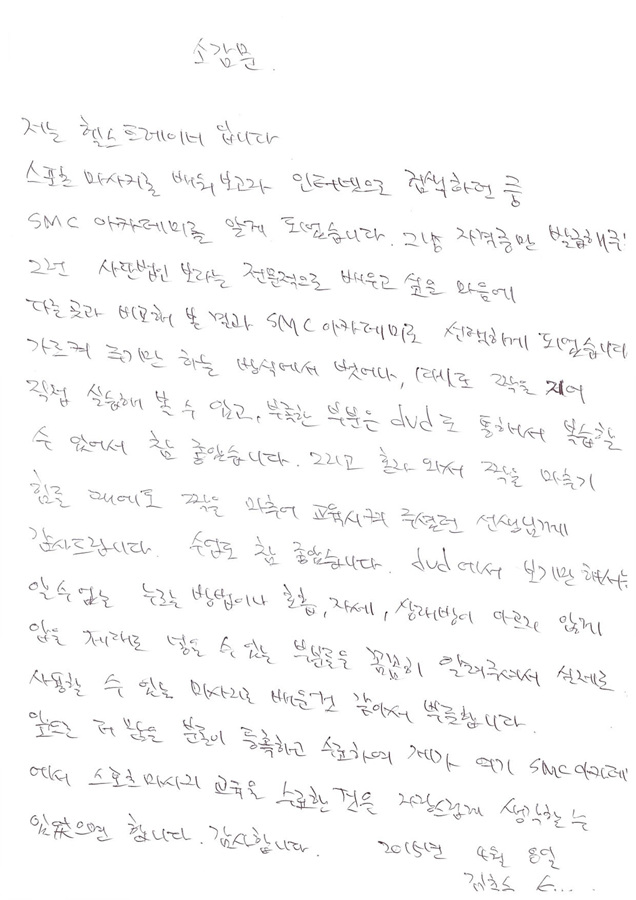 소감문.
저는 헬스트레이너 입니다
스포츠 마사지를 배워보고자 인터넷으로 검색하던 중
SMC 아카데미를 알게 되었습니다. 그냥 자격증만 발급해주
그런 사단법인 보다는 전문적으로 배우고 싶은 마음에
다른곳과 비교해 본 결과 SMC아카데미로 선택하게 되었습니다
가르켜 주기만 하는 방식에서 벗어나, 대체로 짝을 지어
직접 실습해 볼 수 있고, 부족한 부분은 dvd로 통해서 복습할
수 있어서 참 좋았습니다. 그리고 혼자 와서 짝을 마추기
힘들 때에도 짝을 마추어 교육시켜 주셨던 선생님께
감사드립니다. 수업도 참 좋았습니다. dvd에서 보기만 해서는
알수없는 누르는 방법이나 호흡, 자세, 상대방이 아프지 않게
압을 제대로 넣을 수 있는 부분들을 꼼꼼히 알려주셔서 실제로
사용할 수 있는 마사지로 배운것 같아서 뿌듯합니다.
앞으로 더 많은 분들이 등록하고 수료하여 제가 여기 SMC아카데
에서 스포츠마사지 교육을 수료한 것을 자랑스럽게 생각할 수
있었으면 합니다. 감사합니다. 2015년 4월 8일